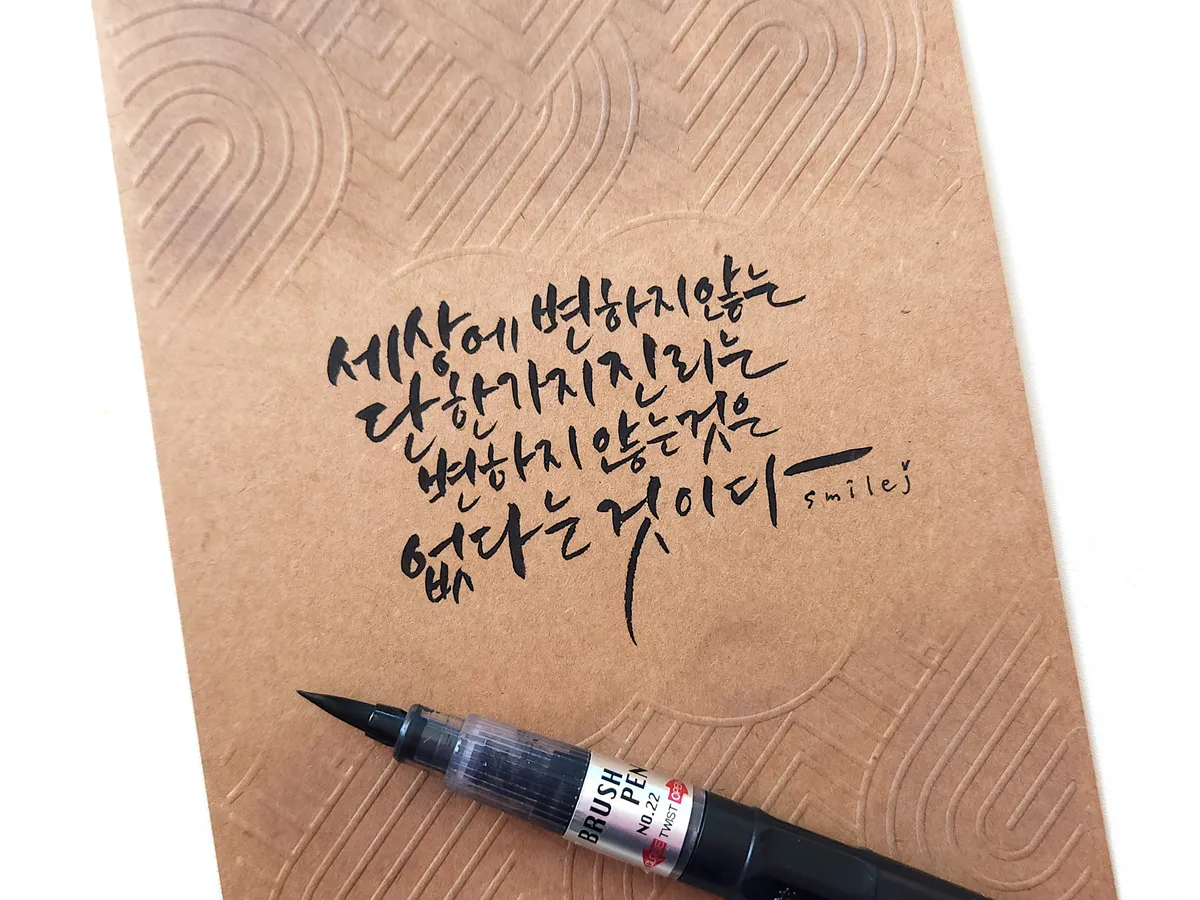 세상에 변하지않는
단한가지진리는
변하지않는것은
없다는것이다
smilej
BRUSH
PEN
NO.22
CLOSE TWIST OPEN